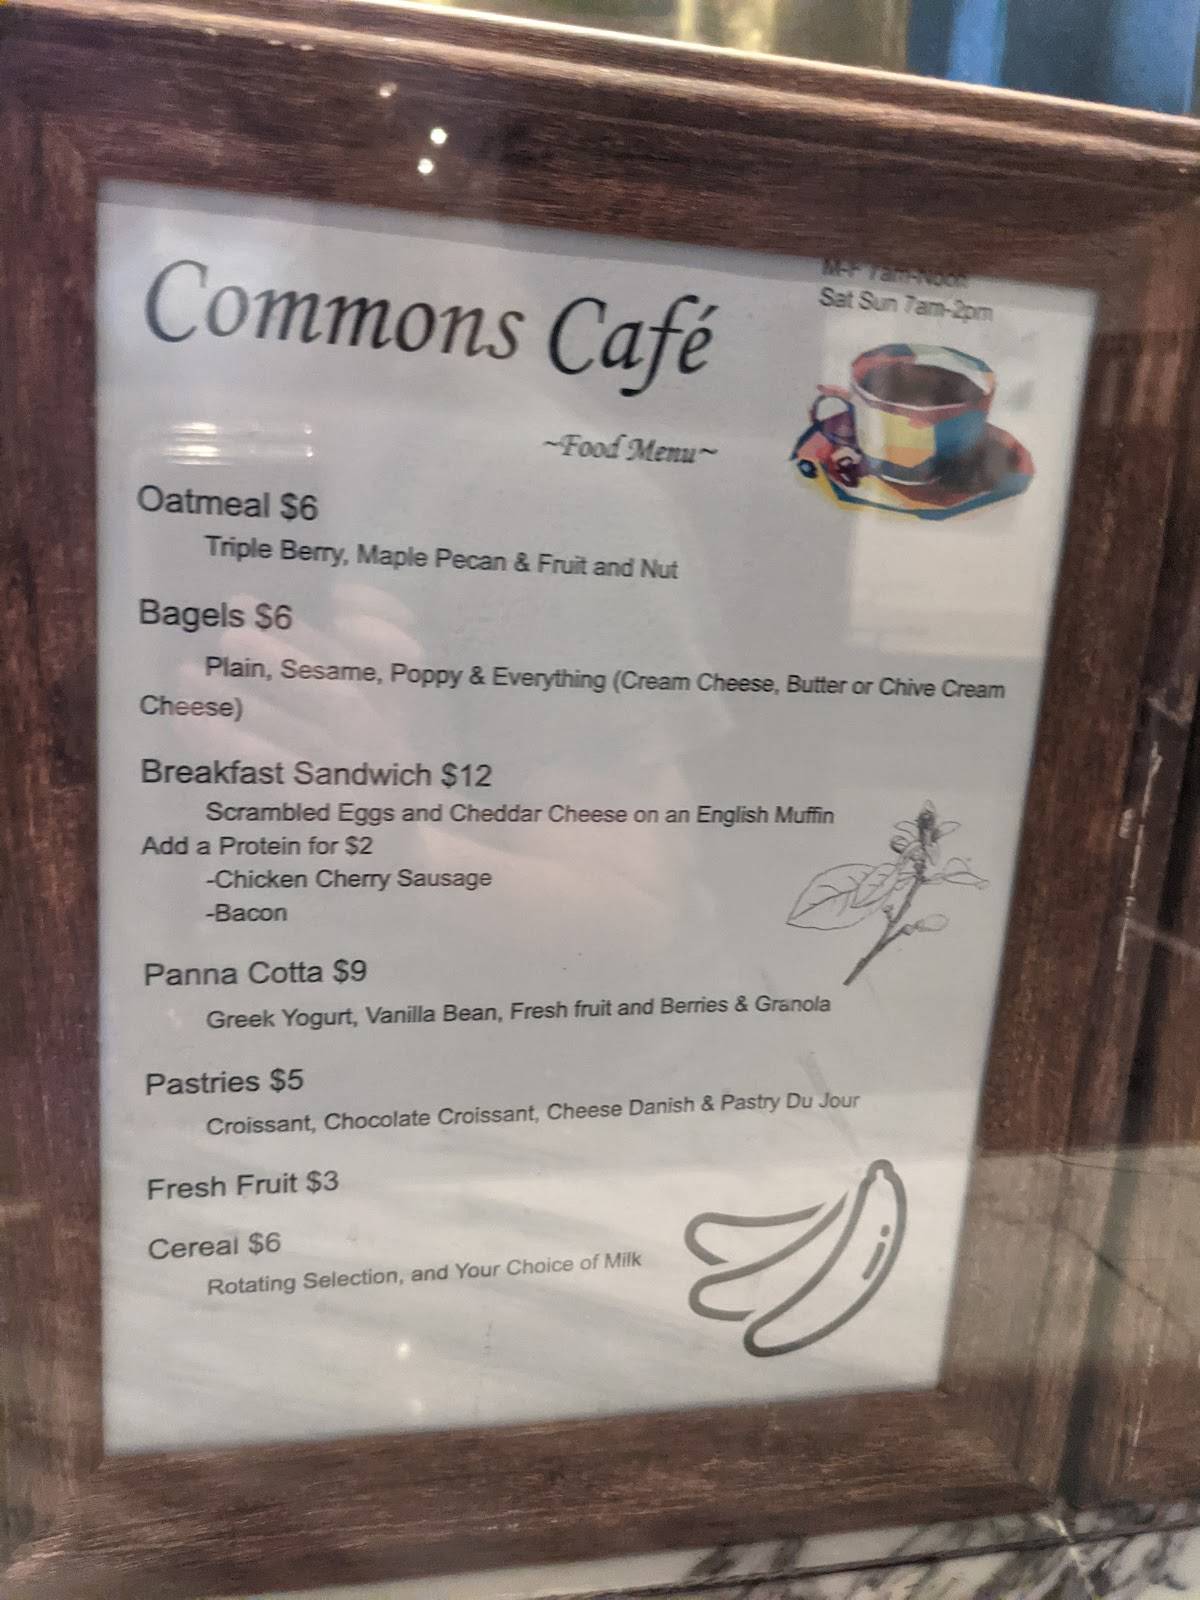 Commons Café
M-F 7am-Noon
Sat Sun 7am-2pm
~Food Menu~
Oatmeal $6
Triple Berry, Maple Pecan & Fruit and Nut
Bagels $6
Plain, Sesame, Poppy & Everything (Cream Cheese, Butter or Chive Cream
Cheese)
Breakfast Sandwich $12
Scrambled Eggs and Cheddar Cheese on an English Muffin
Add a Protein for $2
-Chicken Cherry Sausage
-Bacon
Panna Cotta $9
Greek Yogurt, Vanilla Bean, Fresh fruit and Berries & Granola
Pastries $5
Croissant, Chocolate Croissant, Cheese Danish & Pastry Du Jour
Fresh Fruit $3
Cereal $6
Rotating Selection, and Your Choice of Milk